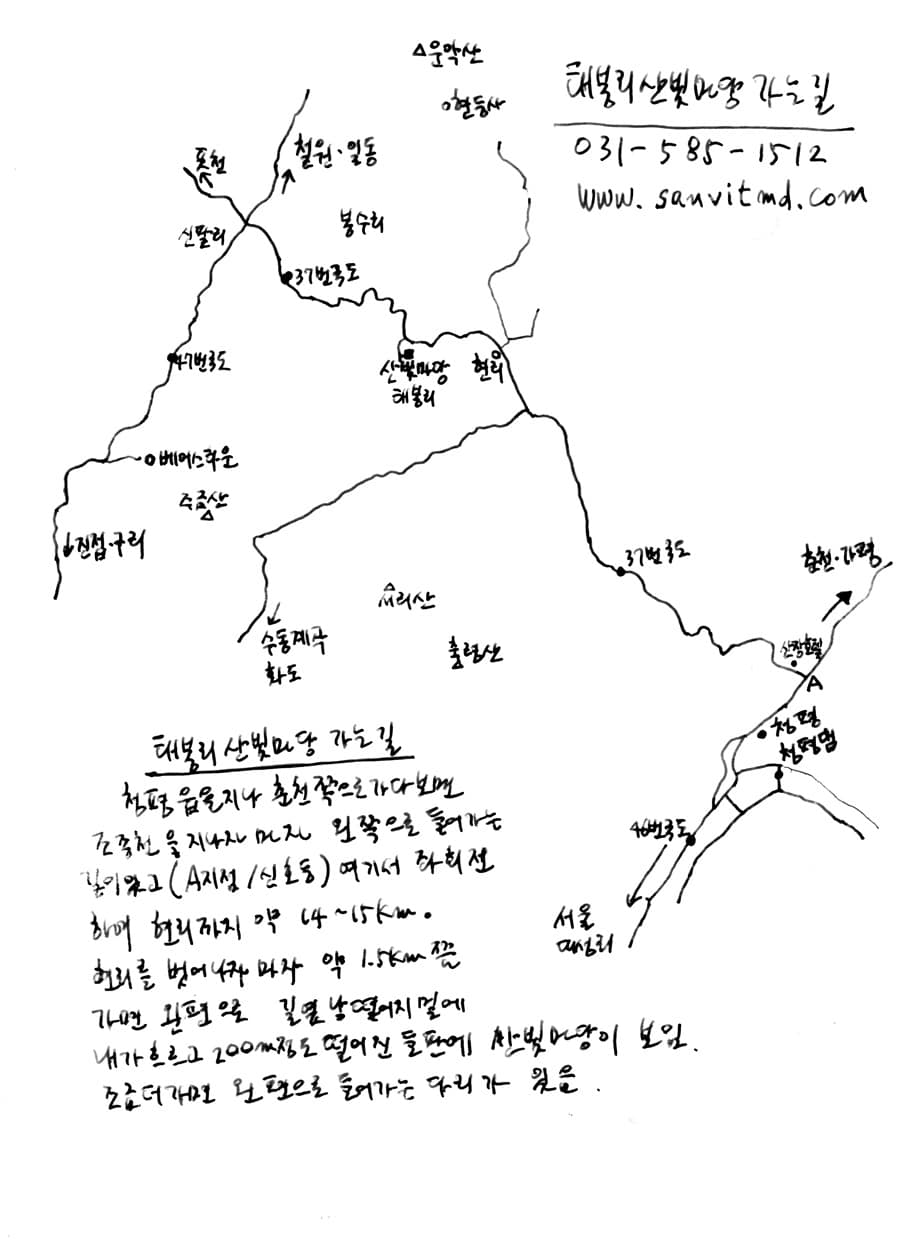 운악산
현등사
태봉리산빛마당 가는길
031-585-1512
www.sanvitmd.com
포천
철원·일동
신팔리
봉수리
37번국도
47번국도
산빛마당
태봉리
현리
베어스타운
주금산
진접·구리
37번국도
춘천·가평
서리산
수동계곡
화도
축령산
산장호텔
A
청평
청평댐
46번국도
서울
대성리
태봉리 산빛마당 가는길
청평읍을지나 춘천쪽으로가다보면
조종천을 지나자 마자 왼쪽으로 들어가는
길이있고(A지점/신호등)여기서 좌회전
하여 현리까지 약 14~15Km.
현리를 벗어나자 마자 약 1.5Km쯤
가면 왼편으로 길옆 낭떨어지 밑에
내가흐르고 200m정도 떨어진 들판에 산빛마당이 보임.
조금더가면 왼편으로 들어가는 다리가 있음.